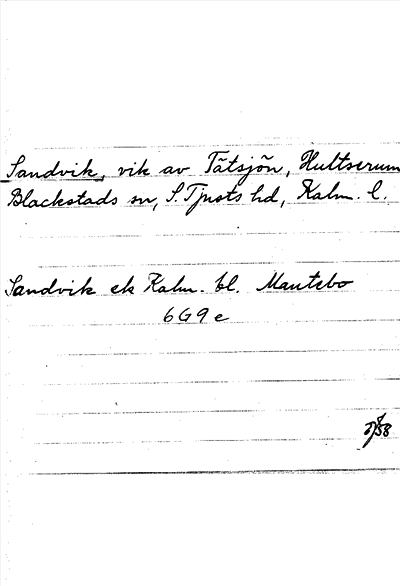 Sandvik, vik av Tätsjön, Hultserum
Blackstads sn, S. Tjusts hd, Kalm. l.
Sandvik ek Kalm. bl. Mantebo
6G9e